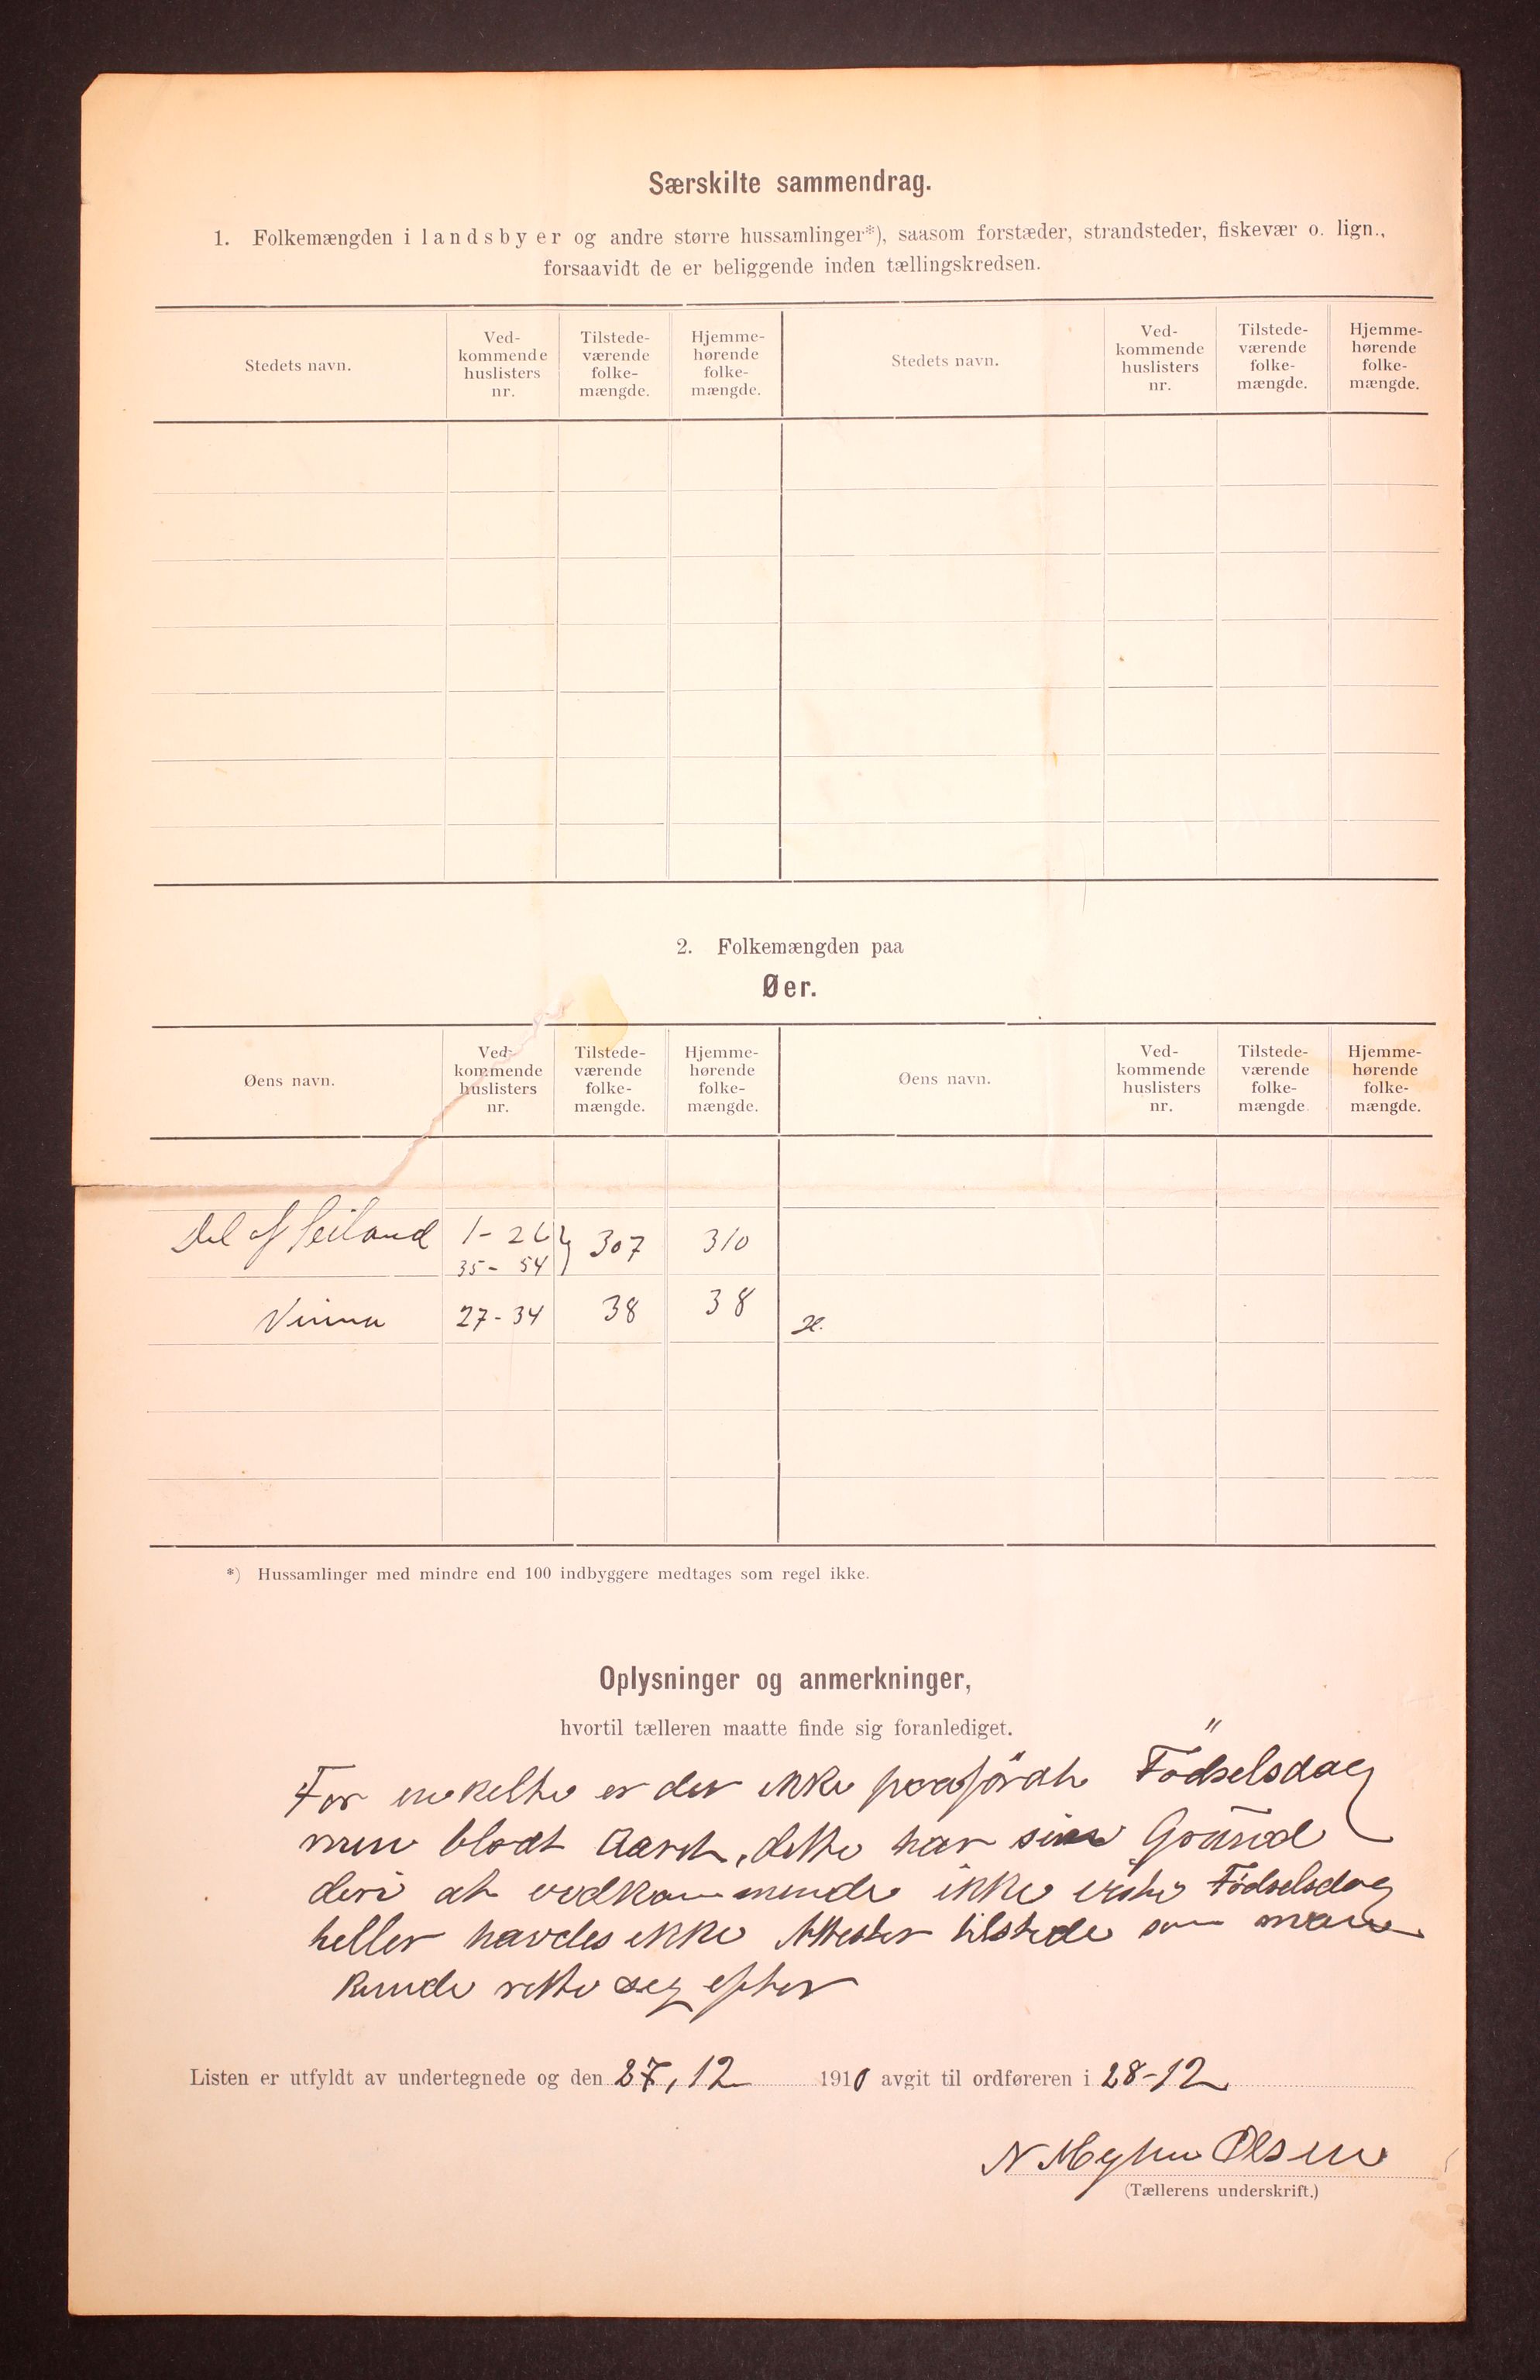 Særskilte sammendrag.
1. Folkemængden i landsbyer og andre større hussamlinger*), saasom forstæder, strandsteder, fiskevær o. lign.,
forsaavidt de er beliggende inden tællingskredsen.
Stedets navn. Ved-kommende huslisters nr. Tilstede-værende folke-mængde. Hjemme-hørende folke-mængde. Stedets navn. Ved-kommende huslisters nr. Tilstede-værende folke-mængde. Hjemme-hørende folke-mængde.
2. Folkemængden paa
Øer.
Øens navn. Ved-kommende huslisters nr. Tilstede-værende folke-mængde. Hjemme-hørende folke-mængde. Øens navn. Ved-kommende huslisters nr. Tilstede-værende folke-mængde Hjemme-hørende folke-mængde.
Del af Seiland 1-26 } 307 310
35- 54
Vinna 27-34 38 38
*) Hussamlinger med mindre end 100 indbyggere medtages som regel ikke.
Oplysninger og anmerkninger,
hvortil tælleren maatte finde sig foranlediget.
For enkelte er der ikke paafördt Födselsdag
men blodt Aaret, dette har sin Grund
deri at vedkommende ikke viste Födselsdag
heller havdes ikke Attester tilstede som man
kunde rette seg efter
Listen er utfyldt av undertegnede og den 27, 12 1910 avgit til ordføreren i 28-12
N Olsen
(Tællerens underskrift.)